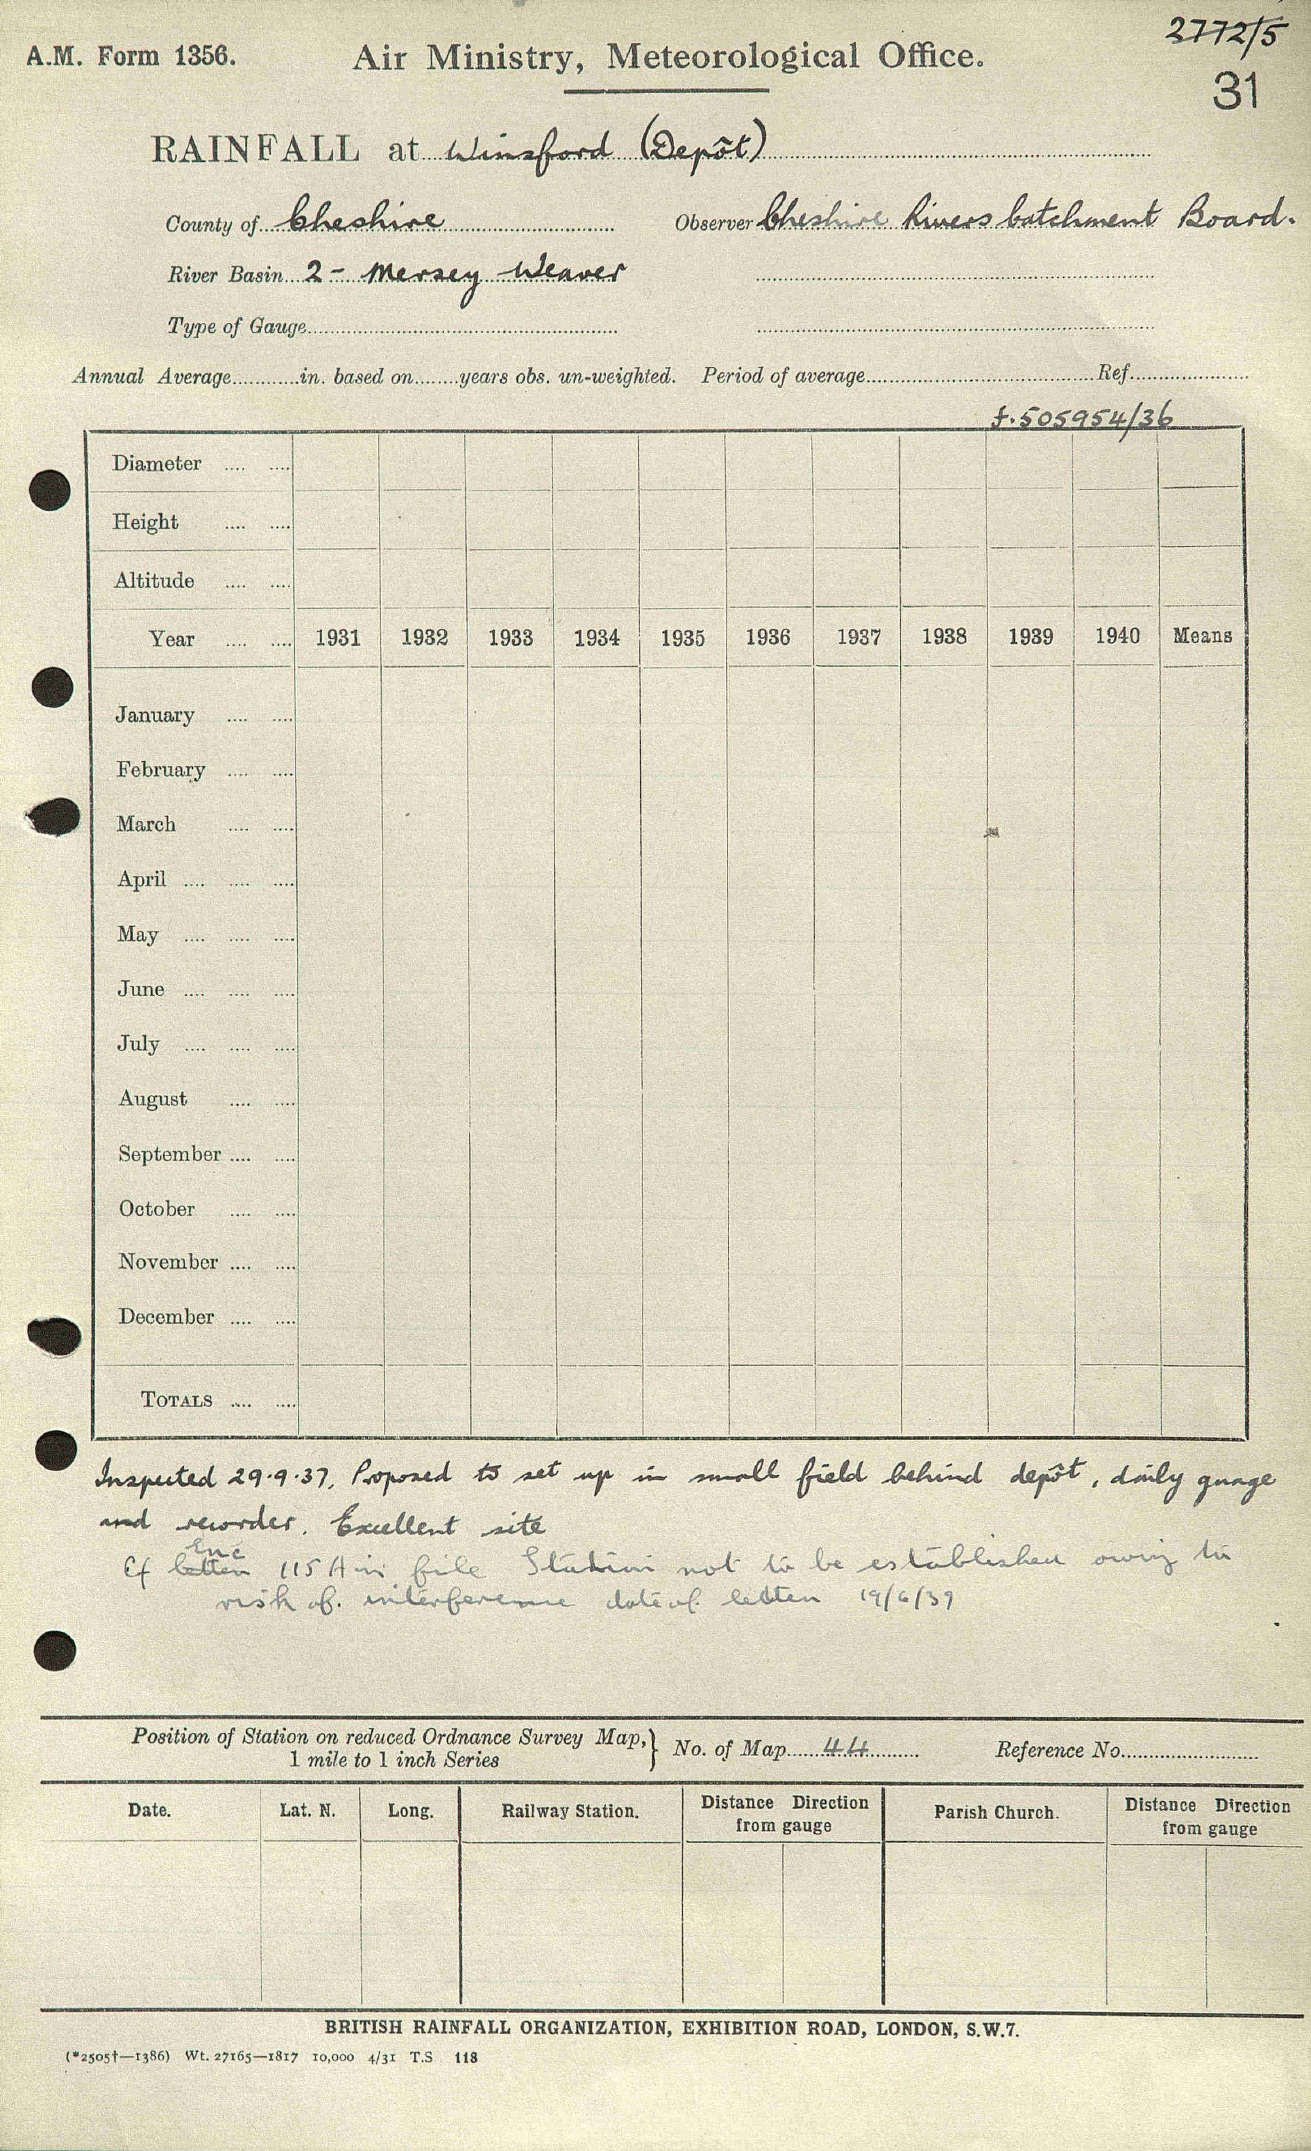 2772/5
A.M. Form 1356. Air Ministry, Meteorological Office.
31
RAINFALL at Winsford (Depôt)
County of Cheshire Observer Cheshire Rivers Catchment Board.
River Basin 2 - Mersey Weaver
Type of Gauge
Annual Average in. based on years obs. un-weighted. Period of average Ref.
f.505954/36
Diameter
Height
Altitude
Year 1931 1932 1933 1934 1935 1936 1937 1938 1939 1940 Means
January
February
March
April
May
June
July
August
September
October
November
December
TOTALS
Inspected 29.9.37. Proposed to set up in small field behind depôt, daily guage
and recorder. Excellent site
Enc
Cf letter 115A in file Station not to be established owing to
risk of interference date of letter 19/6/39
Position of Station on reduced Ordnance Survey Map, } No. of Map 44 Reference No.
1 mile to 1 inch Series
Date. Lat. N. Long. Railway Station. Distance Direction Parish Church. Distance Direction
from gauge from gauge
BRITISH RAINFALL ORGANIZATION, EXHIBITION ROAD, LONDON, S.W.7.
(*2505†—1386) Wt. 27165—1817 10,000 4/31 T.S 118